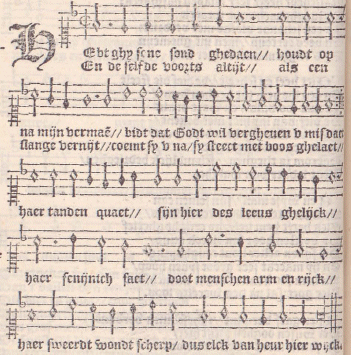 HEbt ghy sene sond ghedaen// houdt op
En de selfde voorts altijt// als een
na mijn vermaē// bidt dat Godt wil vergheven v misdaet
slange vernijt//coemt sy v na/sy steect met boos ghelaet//
haer tanden quaet// sijn hier des leeus ghelijck//
haer fenijnich saet// doet menschen arm en rijck//
haer sweerdt wondt scherp/ dus elck van heur hier wijck